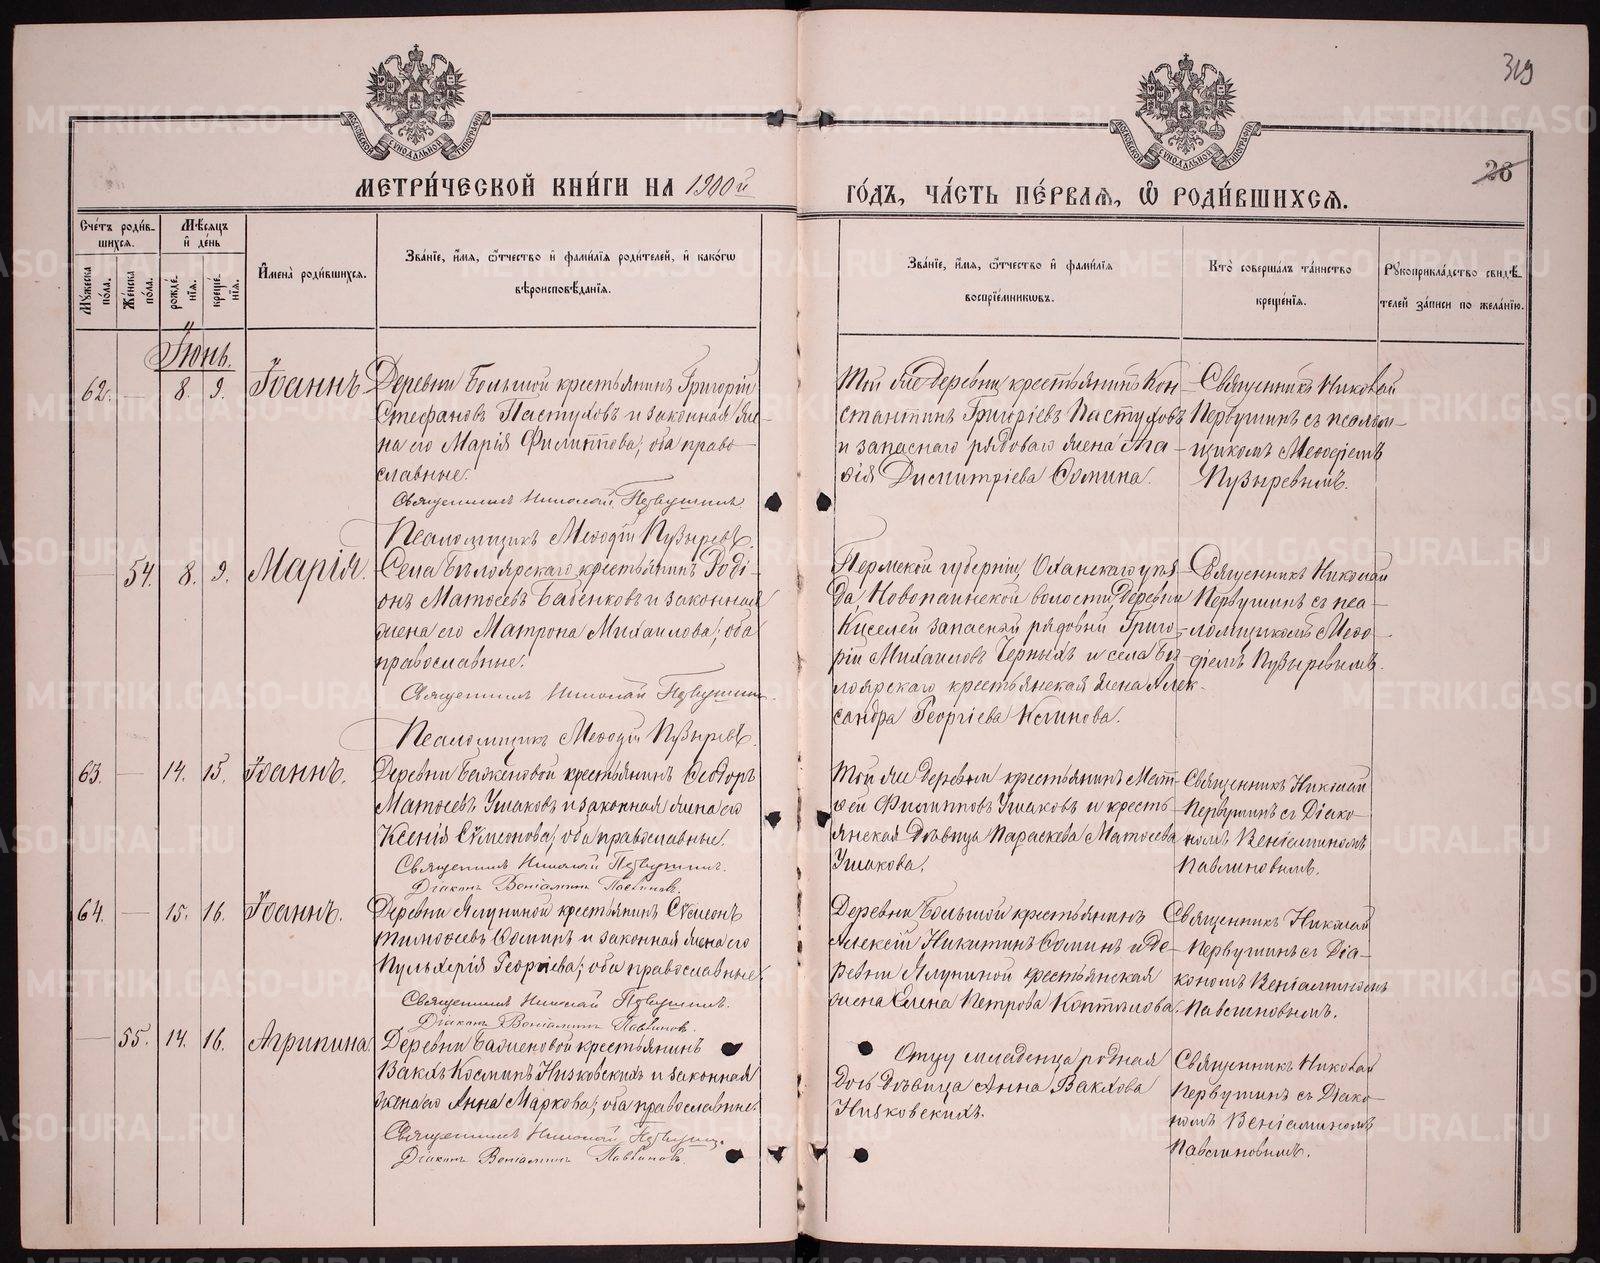 319
28
МОСКОВСКОЙ СѴНОДАЛЬНОЙ ТИПОГРАФІИ
МОСКОВСКОЙ СѴНОДАЛЬНОЙ ТИПОГРАФІИ
МЕТРИ́ЧЕСКОЙ КНИ́ГИ НА 1900й
ГО́ДЪ, ЧА́СТЬ ПЕ́РВАѦ, Ѽ РОДИ́ВШИХСѦ.
Сче́тъ роди́в-
шихся.
Мꙋ́жеска по́ла.
Же́нска по́ла.
Мѣ́сяцъ
и҆ де́нь
рожде́нїя.
креще́нїя.
И҆мена̀ роди́вшихся.
Зва́нїе, и҆́мя, ѻ҆́тчество и҆ фами́лїя роди́телей, и҆ како́гѡ
вѣроисповѣ́данїя.
Зва́нїе, и҆́мя, ѻ҆́тчество и҆ фами́лїя
воспрїе́мникѡвъ.
Кто̀ соверша́лъ та́инство
креще́нїя.
Рꙋкоприкла́дство свидѣ́-
телей за́писи по жела́нїю.
Іюнь.
62. — 8. 9. Іоаннъ
Деревни Большой крестьянинъ Григорій
Стефановъ Пастуховъ и законная же-
на его Марія Филиппова; оба право-
славные.
Священникъ Николай Первушинъ
Псаломщикъ Меѳодій Пузыревъ.
Той же деревни крестьянинъ Кон-
стантинъ Григоріевъ Пастуховъ
и запаснаго рядоваго жена Та-
исія Димитріева Сомина.
Священникъ Николай
Первушинъ съ псалом-
щикомъ Меѳодіемъ
Пузыревымъ.
— 54. 8. 9. Марія.
Села Бѣлоярскаго крестьянинъ Роді-
онъ Матѳеевъ Бабенковъ и законная
жена его Матрона Михаилова; оба
православные.
Священникъ Николай Первушинъ.
Псаломщикъ Меѳодій Пузыревъ.
Пермской губерніи, Оханскаго уѣз-
да, Новопаинской волости, деревни
Киселей запасный рядовый Григо-
рій Михаиловъ Черныхъ и села Бѣ-
лоярскаго крестьянская жена Алек-
сандра Георгіева
Священникъ Николай
Первушинъ съ пса-
ломщикомъ Меѳо-
діемъ Пузыревымъ.
63. — 14. 15. Іоаннъ.
Деревни Баженовой крестьянинъ Ѳеодоръ
Матѳеевъ Ушаковъ и законная жена его
Ксенія Сѵмеонова; оба православные.
Священникъ Николай Первушинъ.
Діаконъ Веніаминъ Павлиновъ.
Той же деревни крестьянинъ Мат-
ѳей Филипповъ Ушаковъ и кресть-
янская дѣвица Параскева Матѳеева
Ушакова.
Священникъ Николай
Первушинъ съ Діако-
номъ Веніаминомъ
Павлиновымъ.
64. — 15. 16. Іоаннъ.
Деревни Ялуниной крестьянинъ Сѵмеонъ
Тимоѳеевъ Соминъ и законная жена его
Пульхерія Георгіева; оба православные.
Священникъ Николай Первушинъ.
Діаконъ Веніаминъ Павлиновъ.
Деревни Большой крестьянинъ
Алексій Никитинъ Соминъ и де-
ревни Ялуниной крестьянская
жена Елена Петрова
Священникъ Николай
Первушинъ съ Діа-
кономъ Веніаминомъ
Павлиновымъ.
— 55. 14. 16. Агрипина
Деревни Баженовой крестьянинъ
Вакхъ Косминъ Низковскихъ и законная
жена его Анна Маркова; оба православные.
Священникъ Николай Первушинъ.
Діаконъ Веніаминъ Павлиновъ.
Отцу младенца родная
дочь дѣвица Анна Вакхова
Низковскихъ.
Священникъ Николай
Первушинъ съ Діако-
номъ Веніаминомъ
Павлиновымъ.
METRIKI.GASO-URAL.RU